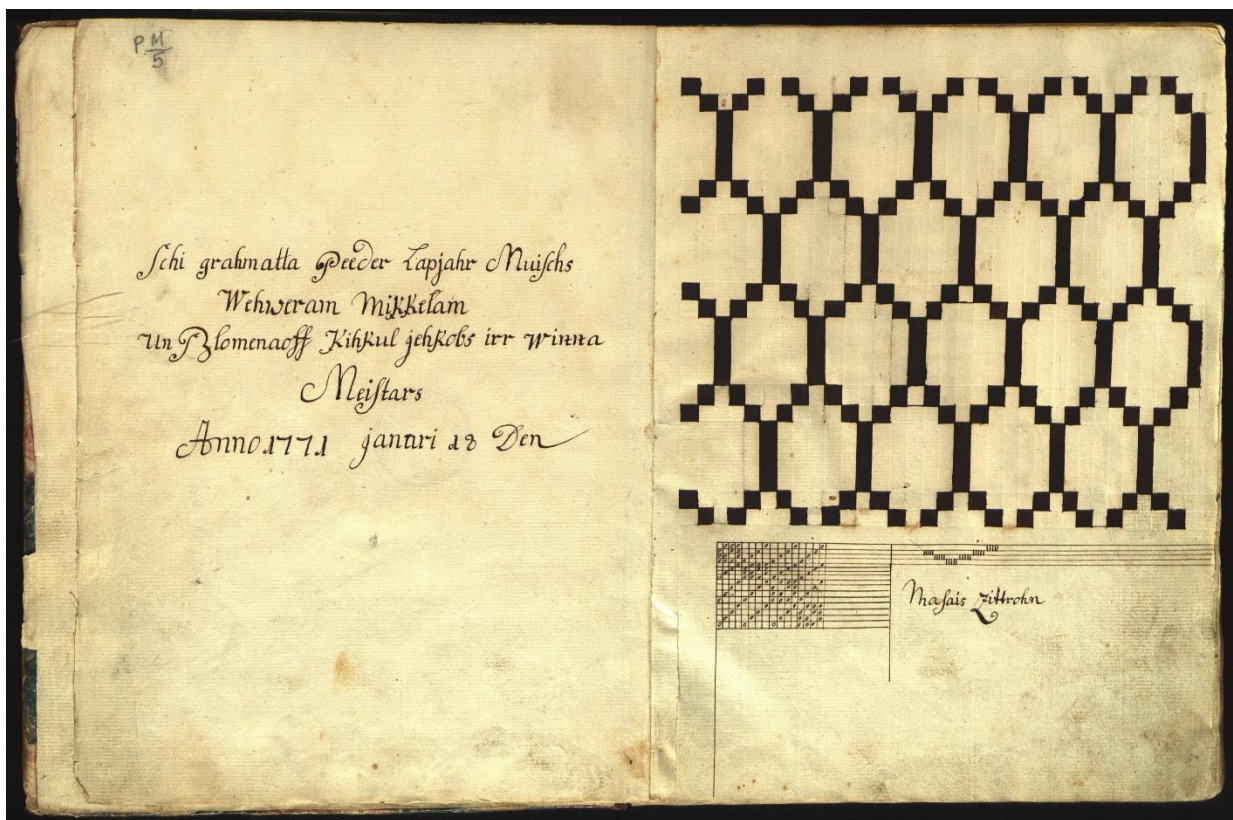 P M/5
Schi grahmatta Peeder Lapjahr Muischs
Wehweram Mikkelam
Un Blomenaoff Kihkul jehkobs irr winna
Meistars
Anno 1771 januri 18 Den
Masais Zittrohn